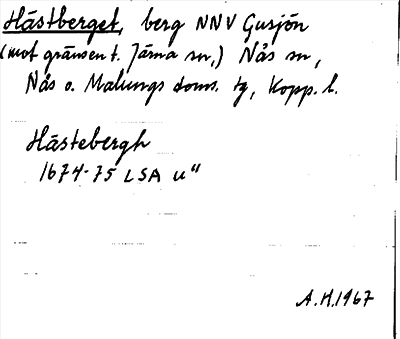 Hästberget, berg NNV Gusjön
(mot gränsen t. Järna sn,) Nås sn,
Nås o. Malungs doms. tg, Kopp. l.
Hästebergh
1674-75 LSA U"
A.H.1967